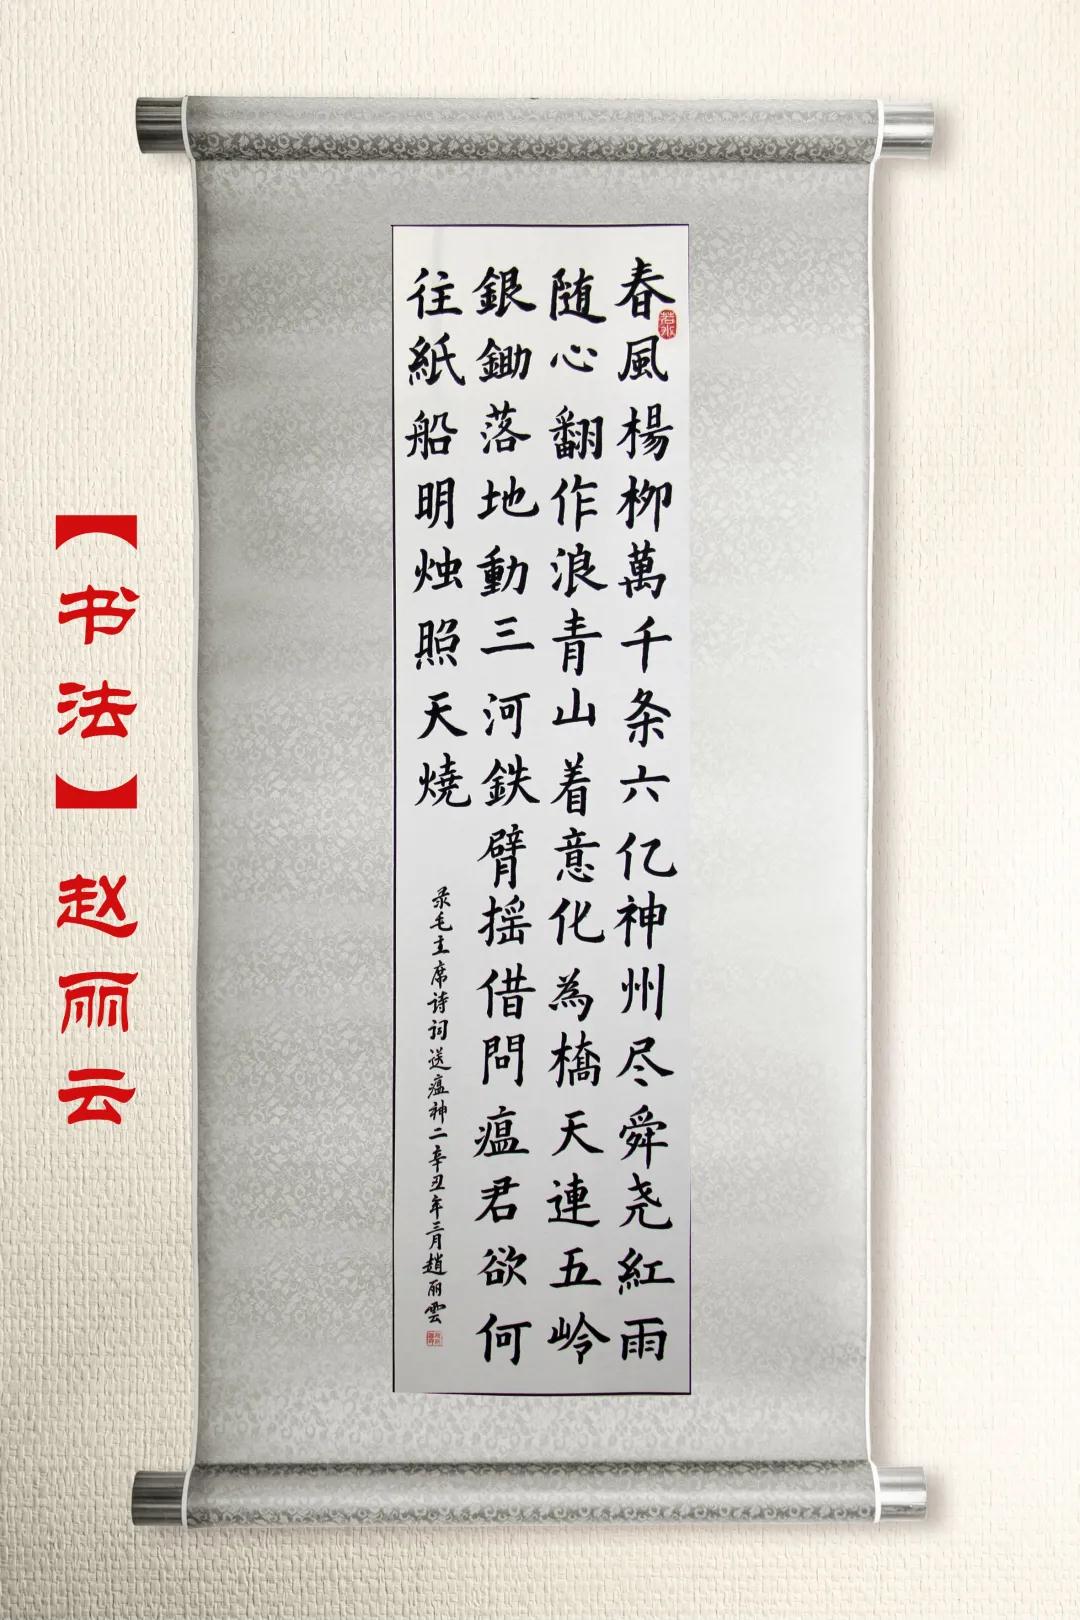 春風楊柳萬千条六亿神州尽舜尧紅雨
随心翻作浪青山着意化為橋天連五岭
銀鋤落地動三河鉄臂摇借問瘟君欲何
往紙船明烛照天燒
录毛主席诗词送瘟神二辛丑年三月趙丽雲
若水
【书法】赵丽云